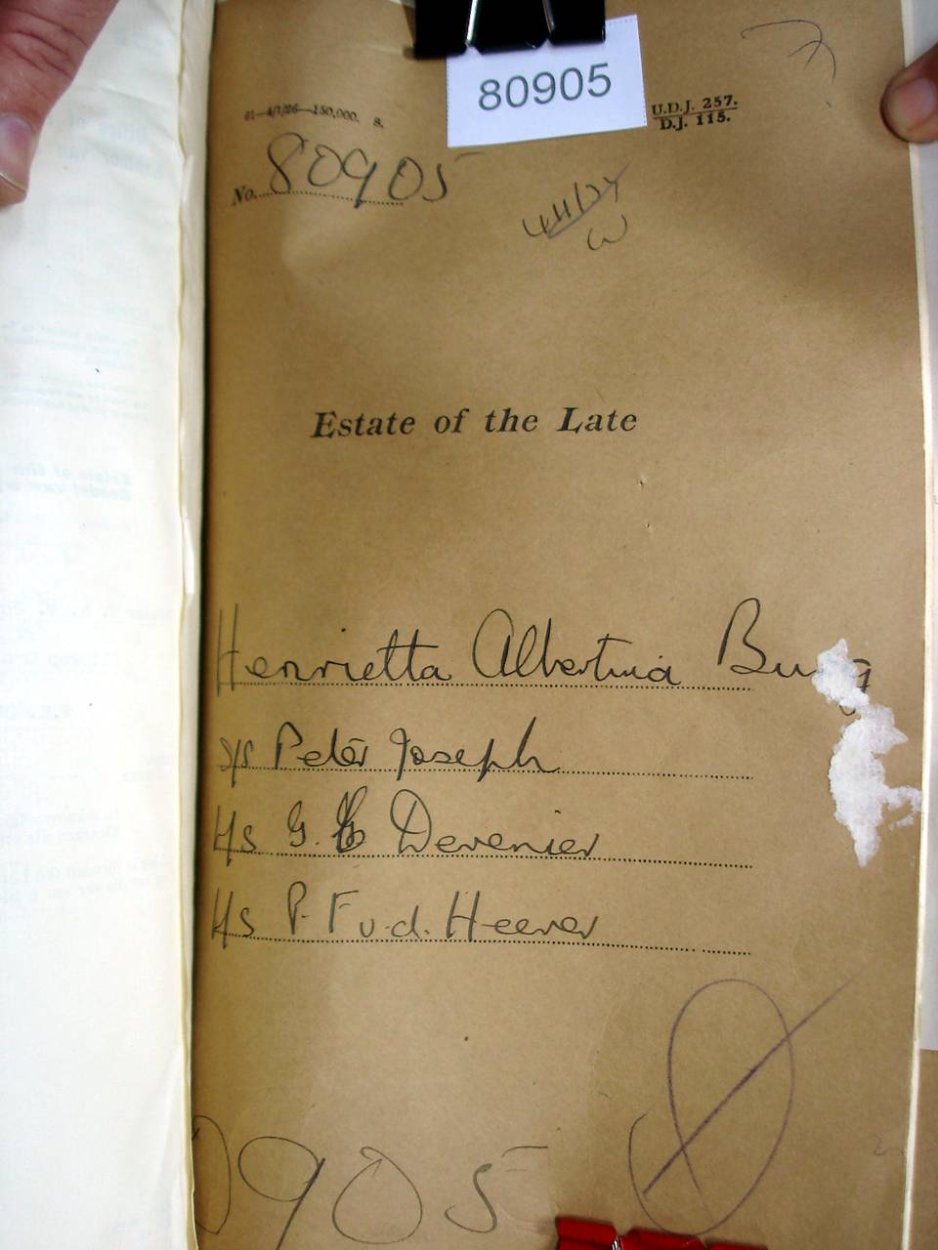 80905
61—4/1/26—150,000. S.
U.D.J. 257.
D.J. 115.
No. 80905
W
Estate of the Late
Henrietta Albertina
s/s Peter Joseph
H/s G. Devenier
H/s P. F v.d. Heever
0905